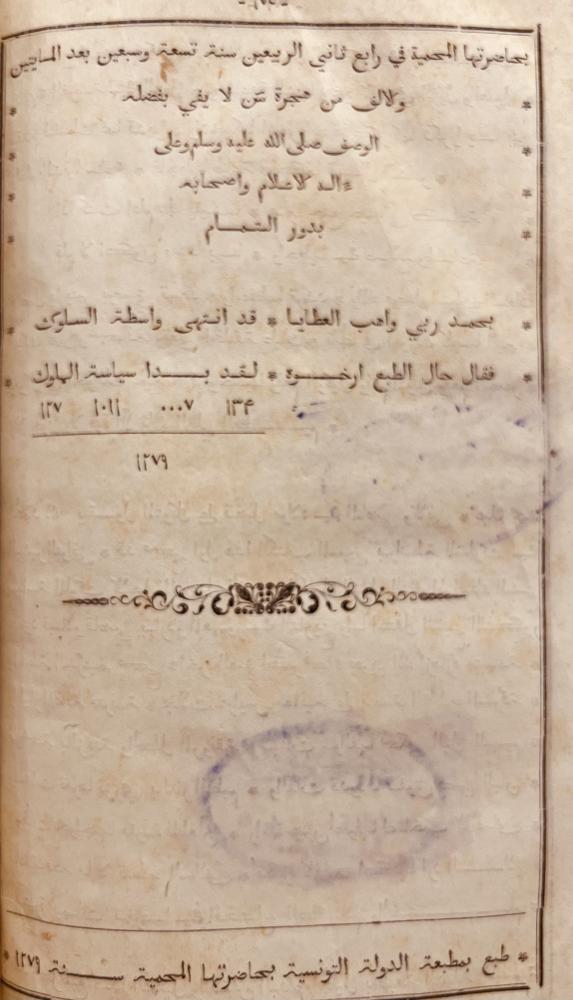 بحاضرتها المحمية في رابع ثاني الربيعين سنة تسعة وسبعين بعد المايتين
* والالف من هجرة مَن لا يفي بفضله *
* الوصف صلى الله عليه وسلم وعلى *
* ءاله الاعلام واصحابه *
* بدور التمام *
* بحمد ربي واهب العطايا * قد انتهى واسطة السلوك *
* فقال حال الطبع ارخوه * لقد بدا سياسة الملوك *
١٣۴ ٠٠٠٧ ١٠١١ ١٢٧
١٢٧٩
* طبع بمطبعة الدولة التونسية بحاضرتها المحمية سنة ١٢٧٩ *